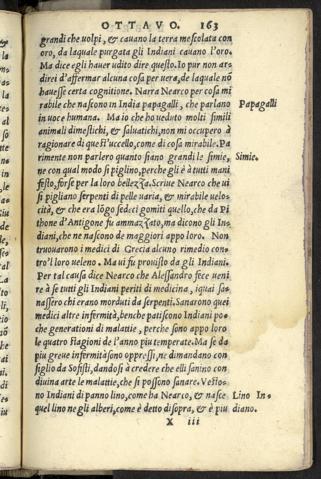 OTTAVO. 163
grandi che uolpi, & cauano la terra mescolata con
oro, da laquale purgata gli Indiani cauano l'oro.
Ma dice egli hauer udito dire questo. Io pur non ar-
direi d'affermar alcuna cosa per uera, de laquale nō
hauesse certa cognitione. Narra Nearco per cosa mi
rabile che nascono in India papagalli, che parlano
Papagalli
in uoce humana. Ma io che ho ueduto molti simili
animali dimestichi, & saluatichi, non mi occupero à
ragionare di quest'uccello, come di cosa mirabile. Pa
rimente non parlero quanto siano grandi le simie,
Simie.
ne con qual modo si piglino, perche gli è à tutti mani
festo, forse per la loro bellezza. Scriue Nearco che ui
si pigliano serpenti di pelle uaria, & mirabile uelo-
cità, & che era lōgo sedeci gomiti quello, che da Pi
thone d'Antigone fu ammazzato, ma dicono gli In-
diani, che ne nascono de maggiori appo loro. Non
truouarono i medici di Grecia alcuno rimedio con-
tro'l loro ueleno. Ma ui fu prouisto da gli Indiani.
Per tal causa dice Nearco che Alessandro fece ueni
re à se tutti gli Indiani periti di medicina, iquai sa-
nassero chi erano morduti da serpenti. Sanarono quei
medici altre infermità, benche patiscono Indiani po-
che generationi di malattie, perche sono appo loro
le quatro stagioni de l'anno piu temperate. Ma se da
piu greue infermità sono oppressi, ne dimandano con
siglio da Sofisti, dandosi à credere che elli sanino con
diuina arte le malattie, che si possono sanare. Vesto-
no Indiani di panno lino, come ha Nearco, & nasce
Lino In-
quel lino ne gli alberi, come è detto di sopra, & è piu
diano.
X iii